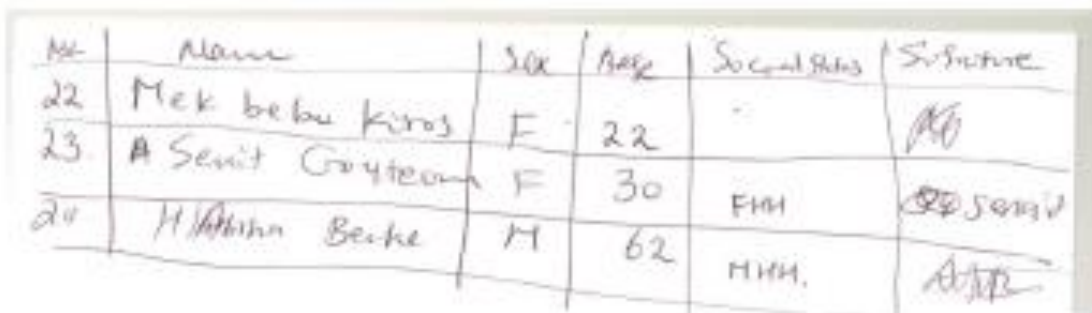 Name Sex Age Social Status Signature
22 Mekbebu Kiros F 22
23 A Senit Goyteom F 30 FHH
24 H/ Berhe M 62 MHH.